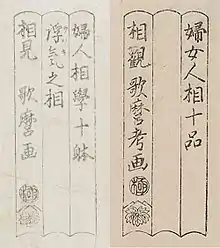 婦人相學十躰
浮氣之相
相見 歌麿画
婦女人相十品
相觀歌麿考画